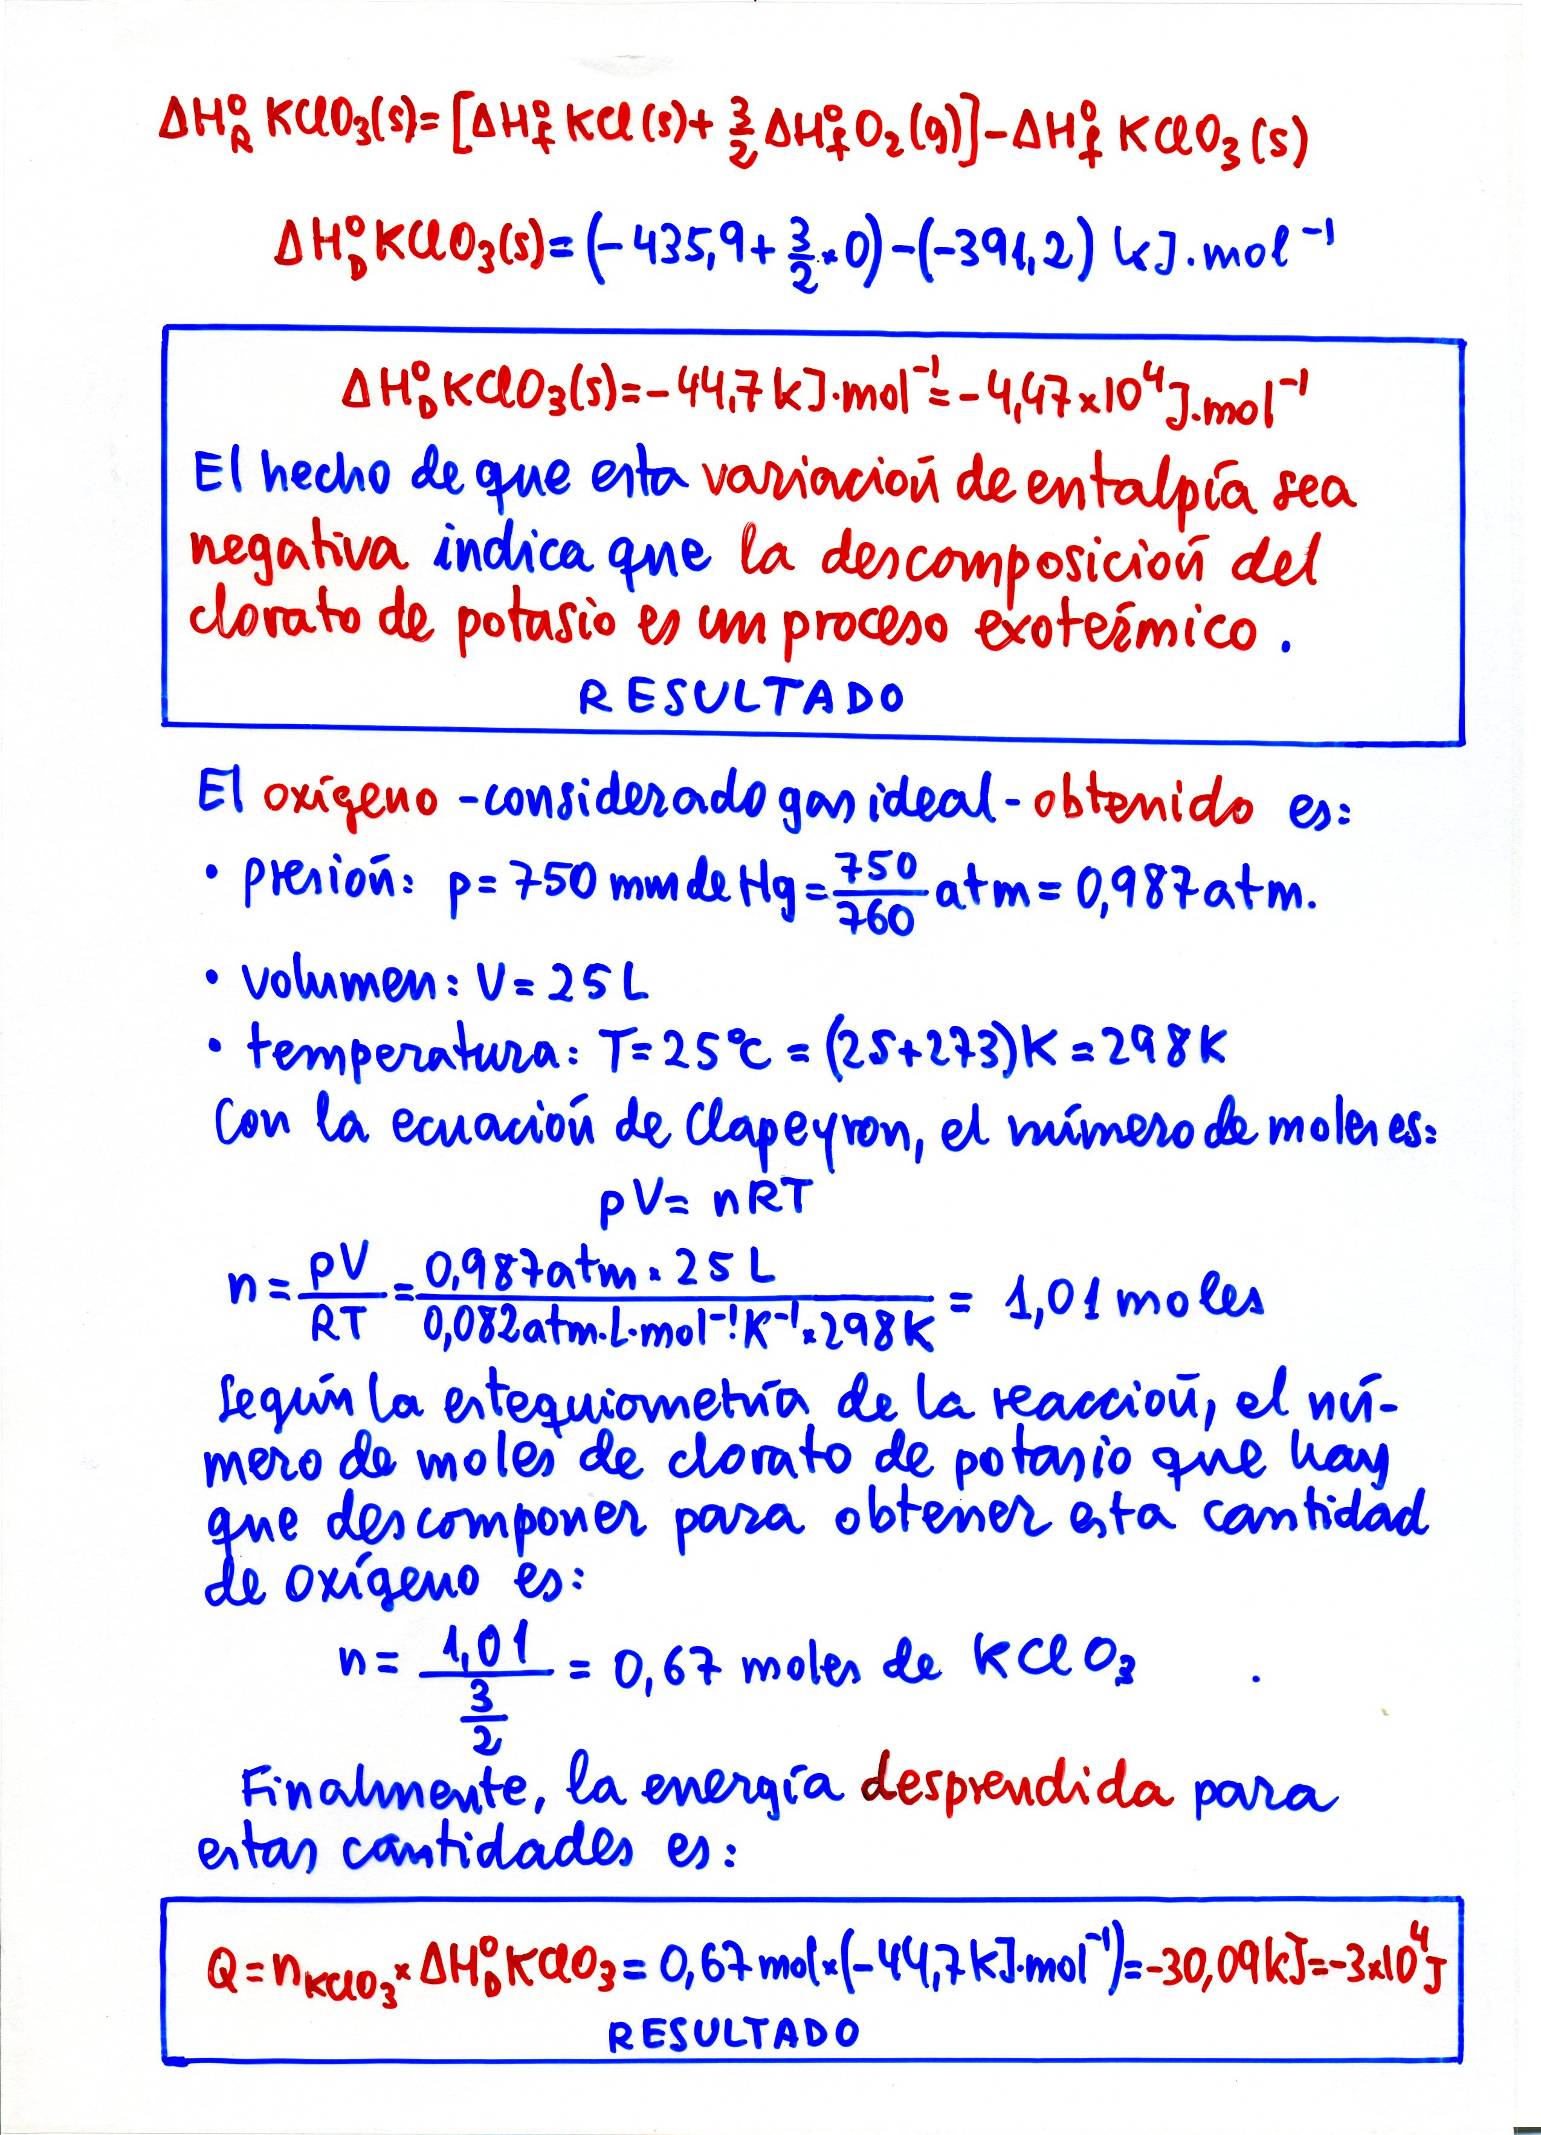 ΔH°R KClO3(s)=[ΔH°f KCl(s)+ 3/2 ΔH°f O2(g)]-ΔH°f KClO3(s)
ΔH°D KClO3(s)=(-435,9+ 3/2 × 0)-(-391,2) kJ.mol⁻¹
ΔH°D KClO3(s)=-44,7 kJ·mol⁻¹=-4,47×10⁴ J.mol⁻¹
El hecho de que esta variación de entalpía sea
negativa indica que la descomposición del
clorato de potasio es un proceso exotérmico.
RESULTADO
El oxígeno -considerado gas ideal- obtenido es:
• presión: p=750 mm de Hg= 750/760 atm=0,987 atm.
• volumen: V=25 L
• temperatura: T=25°C=(25+273)K=298K
Con la ecuación de Clapeyron, el número de moles es:
pV= nRT
n= pV/RT = 0,987 atm × 25 L / 0,082 atm.L.mol⁻¹.K⁻¹ × 298K = 1,01 moles
Según la estequiometría de la reacción, el nú-
mero de moles de clorato de potasio que hay
que descomponer para obtener esta cantidad
de oxígeno es:
n= 1,01 / 3/2 = 0,67 moles de KClO3
Finalmente, la energía desprendida para
estas cantidades es:
Q=nKClO3 × ΔH°D KClO3=0,67 mol×(-44,7 kJ.mol⁻¹)=-30,09 kJ=-3×10⁴ J
RESULTADO